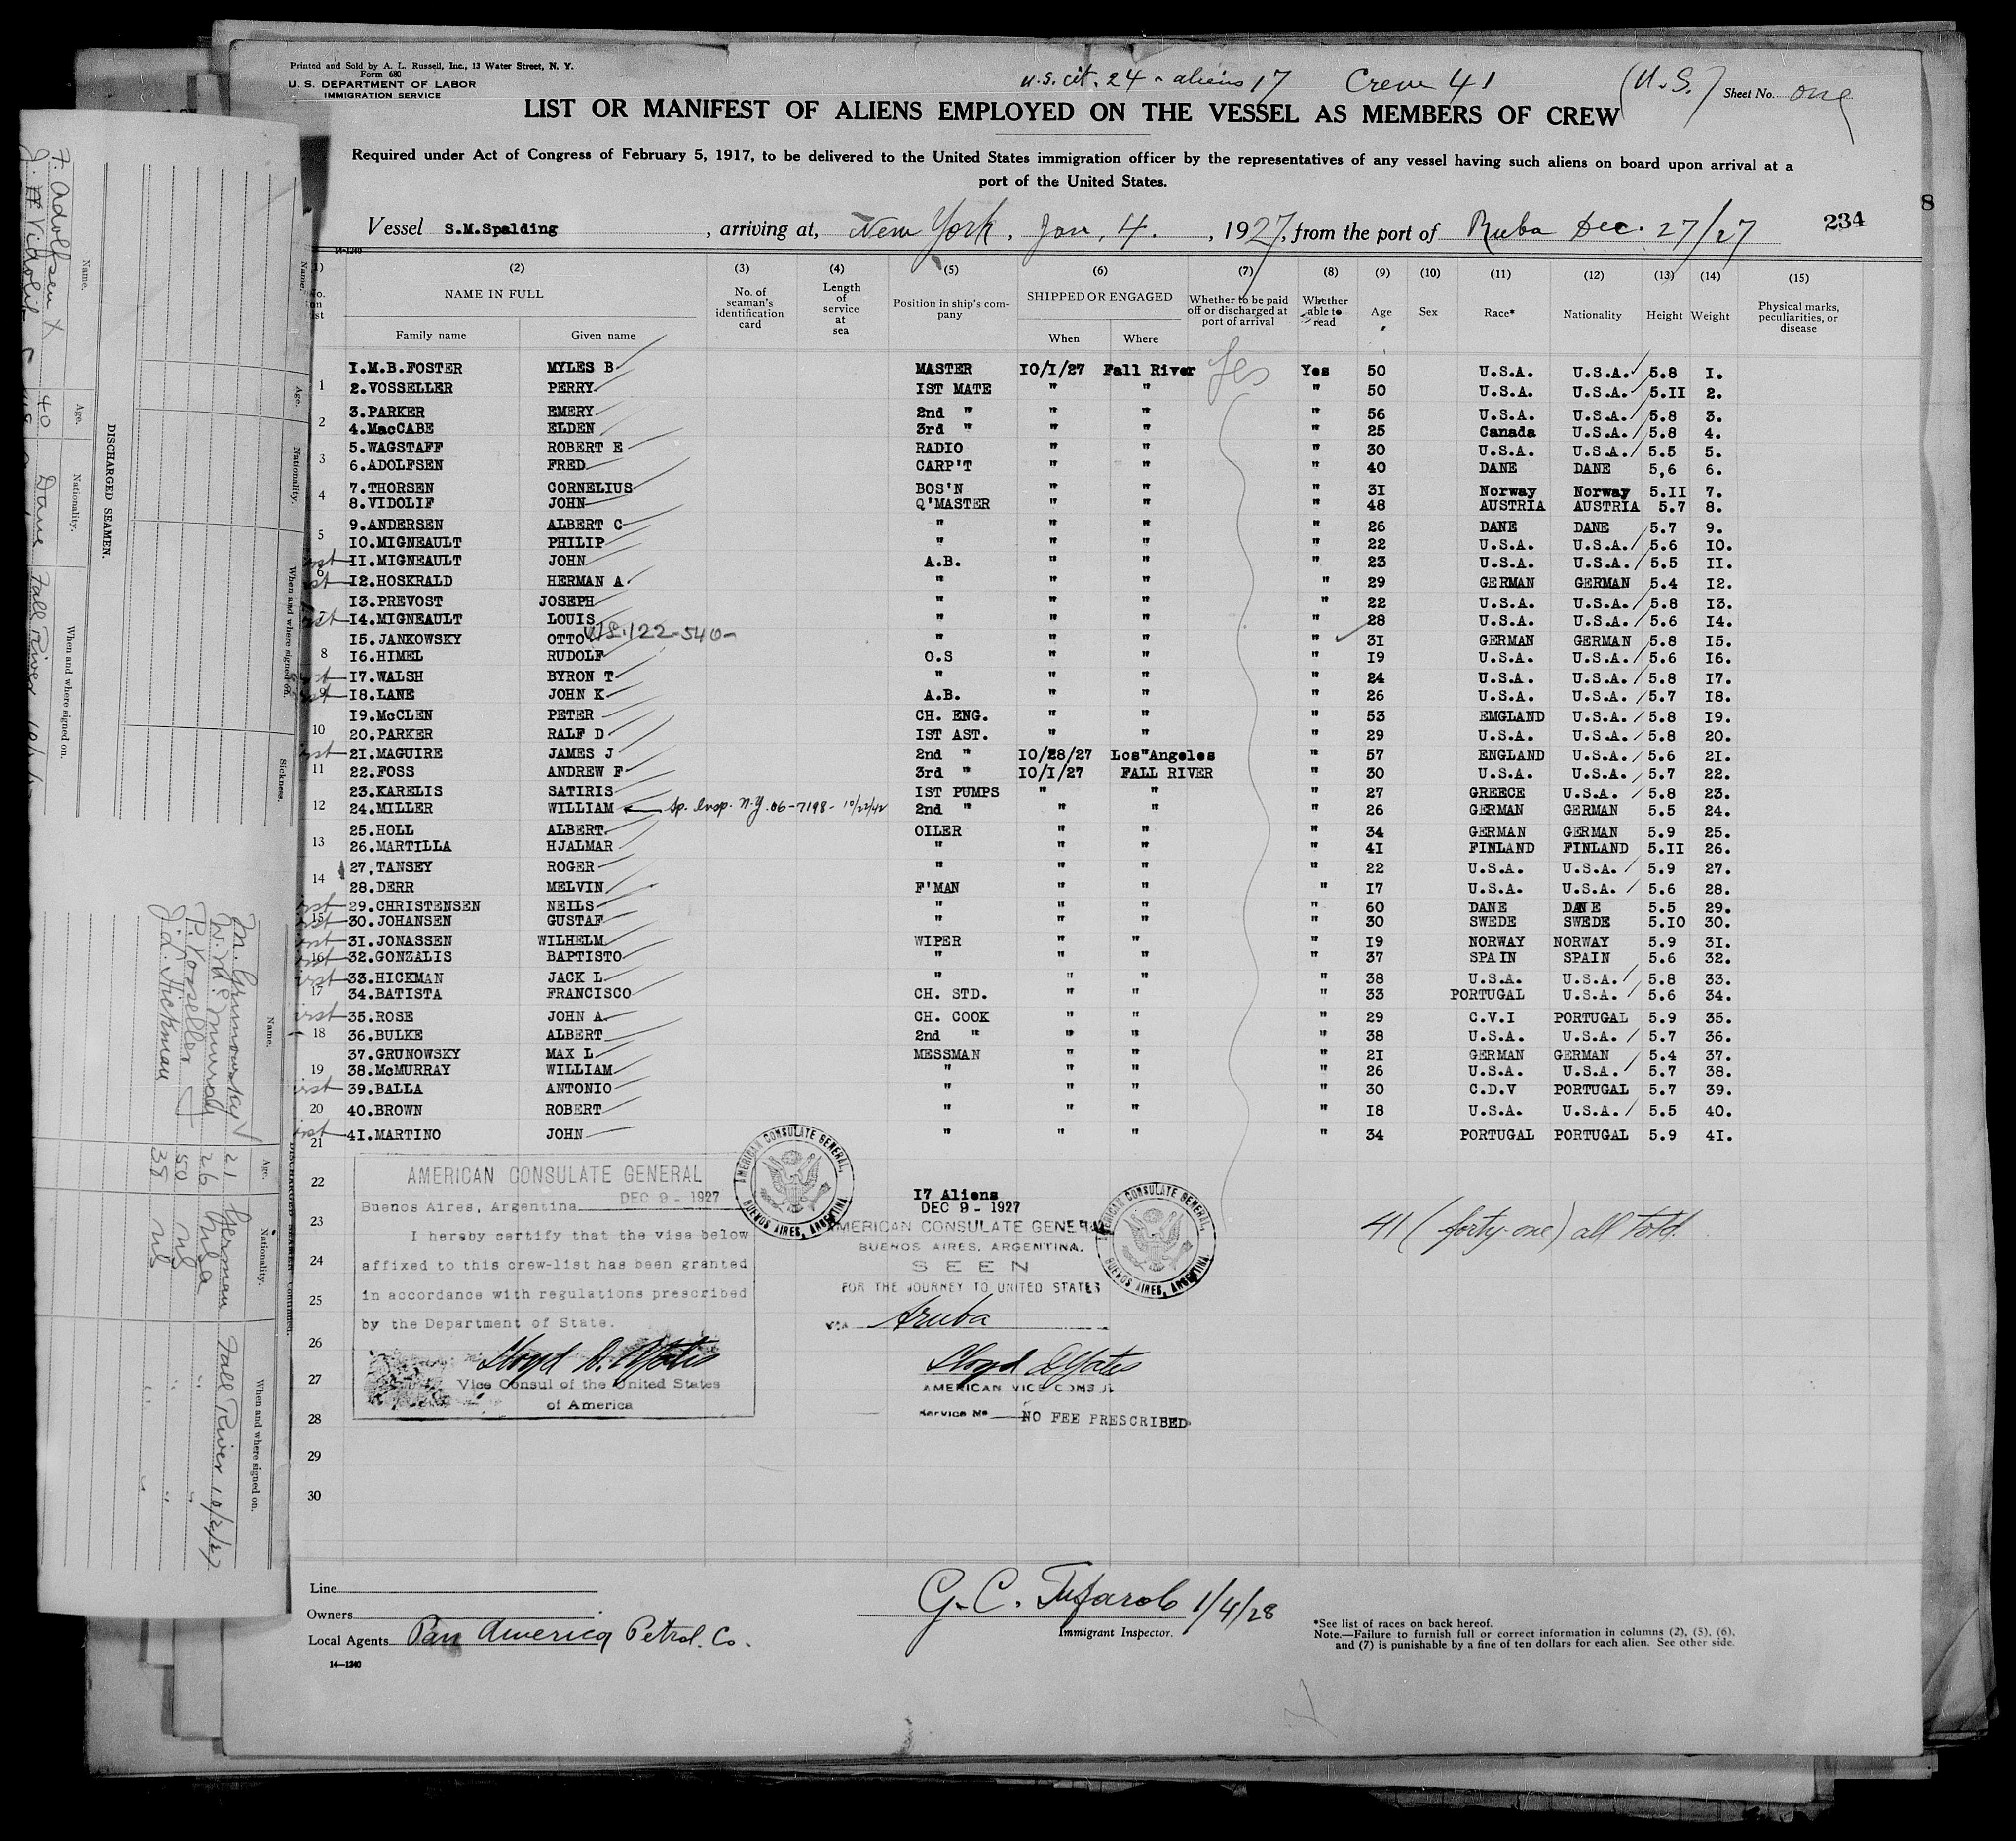 Printed and Sold by A. L. Russell, Inc., 13 Water Street, N. Y.
Form 680
U. S. DEPARTMENT OF LABOR
IMMIGRATION SERVICE
U.S. cit. 24 - aliens 17 Crew 41 (U.S.) Sheet No. one
LIST OR MANIFEST OF ALIENS EMPLOYED ON THE VESSEL AS MEMBERS OF CREW
Required under Act of Congress of February 5, 1917, to be delivered to the United States immigration officer by the representatives of any vessel having such aliens on board upon arrival at a
port of the United States.
8
Vessel S.M.Spalding , arriving at, New York, Jan. 4. , 1927, from the port of Ruba Dec. 27/27 234
14-1240
(1) (2) (3) (4) (5) (6) (7) (8) (9) (10) (11) (12) (13) (14) (15)
No. on list NAME IN FULL Family name Given name No. of seaman's identification card Length of service at sea Position in ship's company SHIPPED OR ENGAGED When Where Whether to be paid off or discharged at port of arrival Whether able to read Age Sex Race* Nationality Height Weight Physical marks, peculiarities, or disease
1.M.B.FOSTER MYLES B MASTER 10/1/27 Fall River Yes Yes 50 U.S.A. U.S.A. 5.8 1.
1 2.VOSSELLER PERRY 1ST MATE " " " 50 U.S.A. U.S.A. 5.11 2.
3.PARKER EMERY 2nd " " " " 56 U.S.A. U.S.A. 5.8 3.
2 4.MacCABE ELDEN 3rd " " " " 25 Canada U.S.A. 5.8 4.
5.WAGSTAFF ROBERT E RADIO " " " 30 U.S.A. U.S.A. 5.5 5.
3 6.ADOLFSEN FRED CARP'T " " " 40 DANE DANE 5,6 6.
7.THORSEN CORNELIUS BOS'N " " " 31 Norway Norway 5.11 7.
4 8.VIDOLIF JOHN Q'MASTER " " " 48 AUSTRIA AUSTRIA 5.7 8.
9.ANDERSEN ALBERT C " " " " 26 DANE DANE 5.7 9.
5 10.MIGNEAULT PHILIP " " " " 22 U.S.A. U.S.A. 5.6 10.
11.MIGNEAULT JOHN A.B. " " " 23 U.S.A. U.S.A. 5.5 11.
6 12.HOSKRALD HERMAN A " " " " 29 GERMAN GERMAN 5.4 12.
13.PREVOST JOSEPH " " " " 22 U.S.A. U.S.A. 5.8 13.
7 14.MIGNEAULT LOUIS " " " " 28 U.S.A. U.S.A. 5.6 14.
15.JANKOWSKY OTTO 122-540- " " " " 31 GERMAN GERMAN 5.8 15.
8 16.HIMEL RUDOLF O.S " " " 19 U.S.A. U.S.A. 5.6 16.
17.WALSH BYRON T " " " " 24 U.S.A. U.S.A. 5.8 17.
9 18.LANE JOHN K A.B. " " " 26 U.S.A. U.S.A. 5.7 18.
19.McCLEN PETER CH. ENG. " " " 53 EMGLAND U.S.A. 5.8 19.
10 20.PARKER RALF D 1ST AST. " " " 29 U.S.A. U.S.A. 5.8 20.
21.MAGUIRE JAMES J 2nd " 10/28/27 Los Angeles " 57 ENGLAND U.S.A. 5.6 21.
11 22.FOSS ANDREW F 3rd " 10/1/27 FALL RIVER " 30 U.S.A. U.S.A. 5.7 22.
23.KARELIS SATIRIS 1ST PUMPS " " " 27 GREECE U.S.A. 5.8 23.
12 24.MILLER WILLIAM Sp. Insp. N.Y. 06-7198- 10/22/42 2nd " " " " 26 GERMAN GERMAN 5.5 24.
25.HOLL ALBERT. OILER " " " 34 GERMAN GERMAN 5.9 25.
13 26.MARTILLA HJALMAR " " " " 41 FINLAND FINLAND 5.11 26.
27,TANSEY ROGER " " " 22 U.S.A. U.S.A. 5.9 27.
14 28.DERR MELVIN F'MAN " " " 17 U.S.A. U.S.A. 5.6 28.
29.CHRISTENSEN NEILS " " " " 60 DANE DANE 5.5 29.
15 30.JOHANSEN GUSTAF " " " " 30 SWEDE SWEDE 5.10 30.
31.JONASSEN WILHELM WIPER " " " 19 NORWAY NORWAY 5.9 31.
16 32.GONZALIS BAPTISTO " " " " 37 SPAIN SPAIN 5.6 32.
33.HICKMAN JACK L " " " " 38 U.S.A. U.S.A. 5.8 33.
17 34.BATISTA FRANCISCO CH. STD. " " " 33 PORTUGAL U.S.A. 5.6 34.
35.ROSE JOHN A. CH. COOK " " " 29 C.V.I PORTUGAL 5.9 35.
18 36.BULKE ALBERT 2nd " " " " 38 U.S.A. U.S.A. 5.7 36.
37.GRUNOWSKY MAX L MESSMAN " " " 21 GERMAN GERMAN 5.4 37.
19 38.McMURRAY WILLIAM " " " " 26 U.S.A. U.S.A. 5.7 38.
39.BALLA ANTONIO " " " " 30 C.D.V PORTUGAL 5.7 39.
20 40.BROWN ROBERT " " " " 18 U.S.A. U.S.A. 5.5 40.
21 41.MARTINO JOHN " " " " 34 PORTUGAL PORTUGAL 5.9 41.
22
23
24
25
26
27
28
29
30
AMERICAN CONSULATE GENERAL
DEC 9 - 1927
Buenos Aires, Argentina
I hereby certify that the visa below
affixed to this crew-list has been granted
in accordance with regulations prescribed
by the Department of State.
Lloyd D. Yates
Vice Consul of the United States
of America
AMERICAN CONSULATE GENERAL, BUENOS AIRES, ARGENTINA
17 Aliens
DEC 9 - 1927
AMERICAN CONSULATE GENERAL
BUENOS AIRES, ARGENTINA.
SEEN
FOR THE JOURNEY TO UNITED STATES
VIA Aruba
Lloyd D Yates
AMERICAN VICE CONSUL
Service No NO FEE PRESCRIBED
AMERICAN CONSULATE GENERAL, BUENOS AIRES, ARGENTINA
41 (forty-one) all told.
Line
Owners
Local Agents Pan America Petrol. Co.
14-1240
G. C. Tufarolo 1/4/28
Immigrant Inspector.
*See list of races on back hereof.
Note.—Failure to furnish full or correct information in columns (2), (5), (6),
and (7) is punishable by a fine of ten dollars for each alien. See other side.
DISCHARGED SEAMEN.
Name. Age. Nationality. When and where signed on.
F. Adolfsen X 40 Dane Fall River
J. Vidolif 48
Name. Age. Nationality. When and where signed on. Sickness.
DISCHARGED SEAMEN—Continued.
Name. Age. Nationality. When and where signed on.
M. Grunowsky 21 German Fall River 10/2/27
26
P. Vosseller 50 US " "
J. L. Hickman 38 US " "